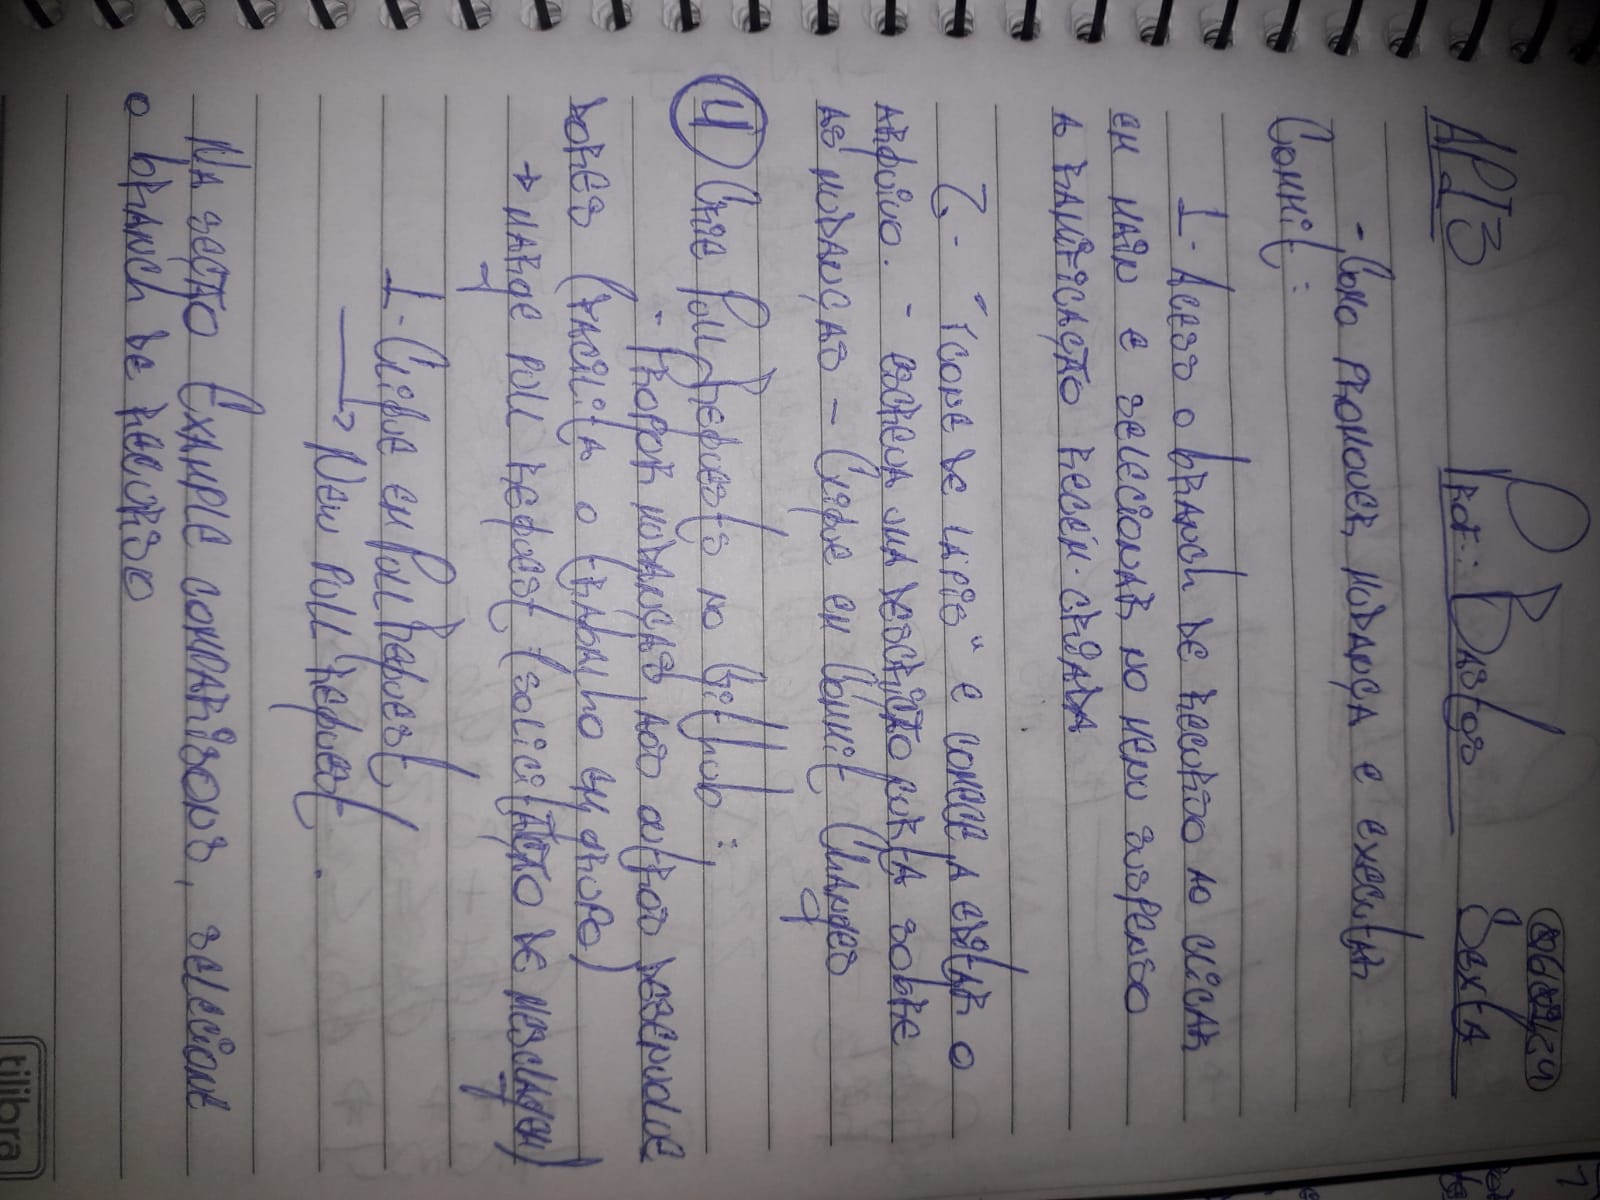 API3 Prof.: Bastos 06/09/24
Sexta
- Como promover mudança e executar
Commit:
1- Acess o branch de recurso ao clicar
em main e selecionar no menu suspenso
a ramificação recém-criada
2- "ícone de lápis" e comece a editar o
arquivo. - escreva uma descrição curta sobre
as mudanças - Clique em Commit Changes
4 Crie Pull Requests no GitHub:
- Propor mudanças aos outros desenvolve
dores (facilita o trabalho em grupo)
→ Marge pull request (solicitação de mesclagem)
1- Clique em Pull Request
→ New pull request.
Na seção Example comparisons, selecione
o branch de recurso
tilibra